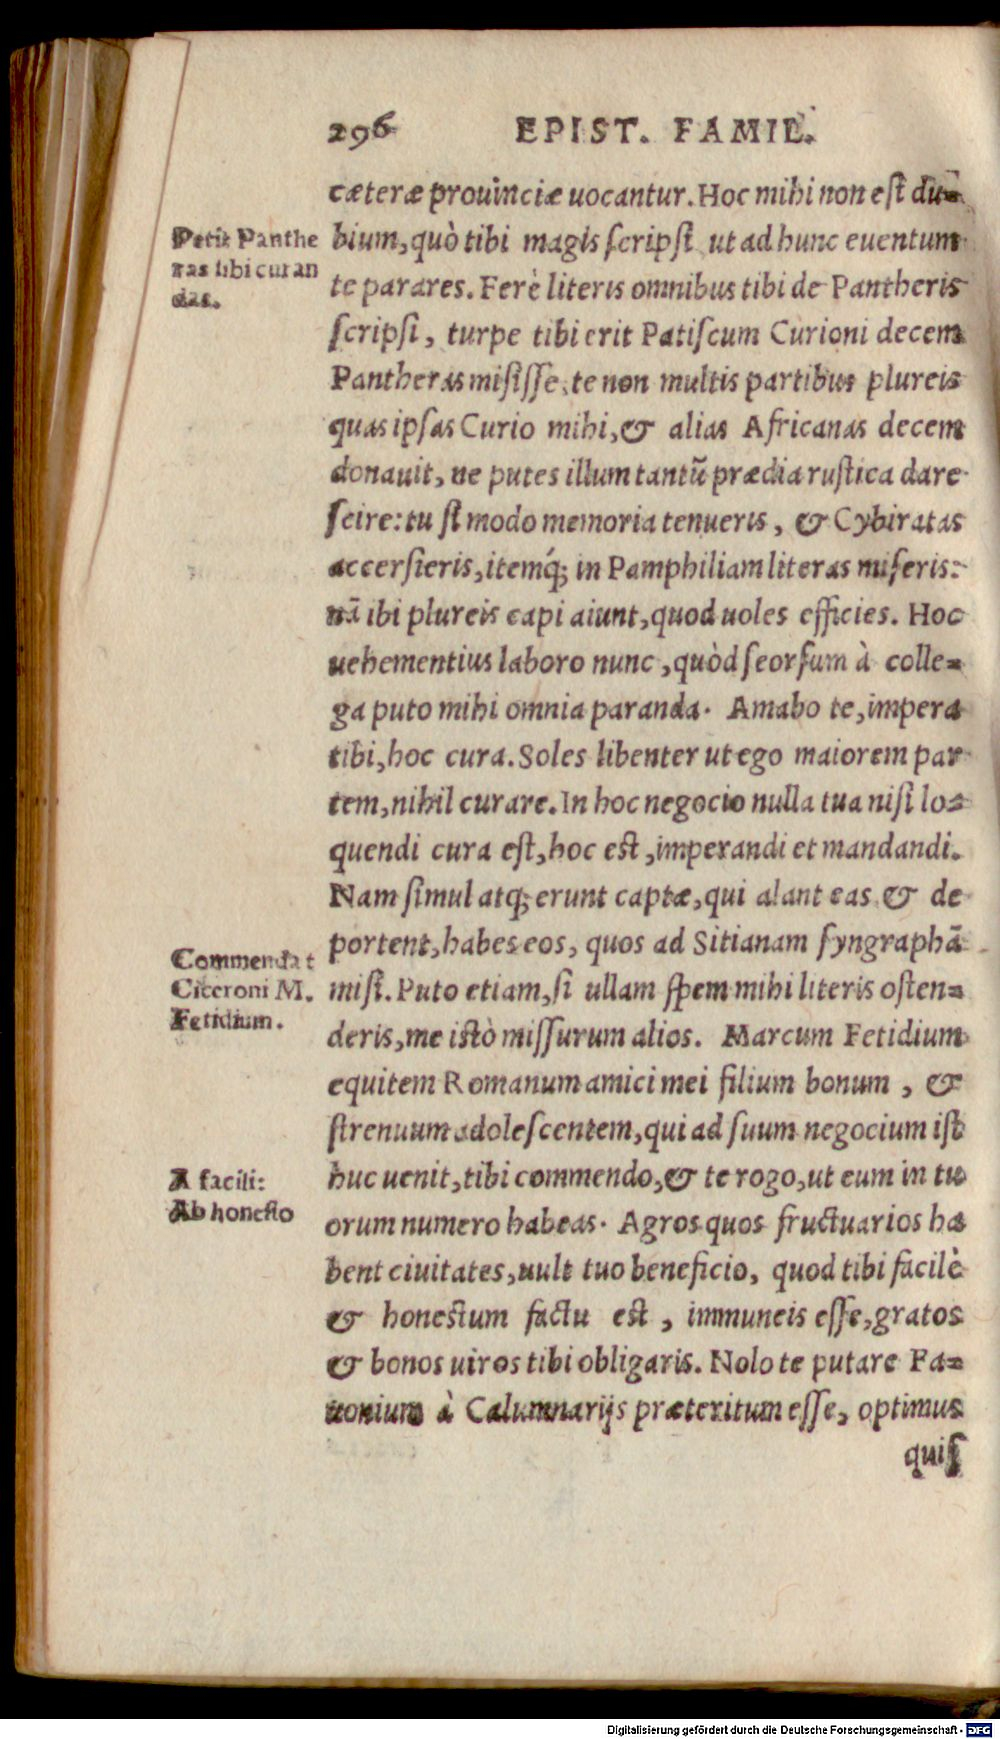 296 EPIST. FAMIL.
cæteræ prouinciæ uocantur. Hoc mihi non est du-
bium, quò tibi magis scripsi ut ad hunc euentum
te parares. Ferè literis omnibus tibi de Pantheris
scripsi, turpe tibi erit Patiscum Curioni decem
Pantheras misisse, te non multis partibus plureis
quas ipsas Curio mihi, & alias Africanas decem
donauit, ne putes illum tantū prædia rustica dare
scire: tu si modo memoria tenueris, & Cybiratas
accersieris, itemq́; in Pamphiliam literas miseris:
nā ibi plureis capi aiunt, quod uoles efficies. Hoc
uehementius laboro nunc, quòd seorsum à colle-
ga puto mihi omnia paranda. Amabo te, impera
tibi, hoc cura. Soles libenter ut ego maiorem par
tem, nihil curare. In hoc negocio nulla tua nisi lo-
quendi cura est, hoc est, imperandi et mandandi.
Nam simul atq; erunt captæ, qui alant eas & de
portent, habes eos, quos ad Sitianam syngraphā
misi. Puto etiam, si ullam spem mihi literis osten-
deris, me istò missurum alios. Marcum Fetidium
equitem Romanum amici mei filium bonum, &
strenuum adolescentem, qui ad suum negocium ist
huc uenit, tibi commendo, & te rogo, ut eum in tu
orum numero habeas. Agros quos fructuarios ha
bent ciuitates, uult tuo beneficio, quod tibi facilè
& honestum factu est, immuneis esse, gratos
& bonos uiros tibi obligaris. Nolo te putare Fa-
uonium à Calumnarijs præteritum esse, optimus
quis
Petit Panthe
ras sibi curan
das.
Commendat
Ciceroni M.
Fetidium.
A facili:
Ab honesto
Digitalisierung gefördert durch die Deutsche Forschungsgemeinschaft - DFG